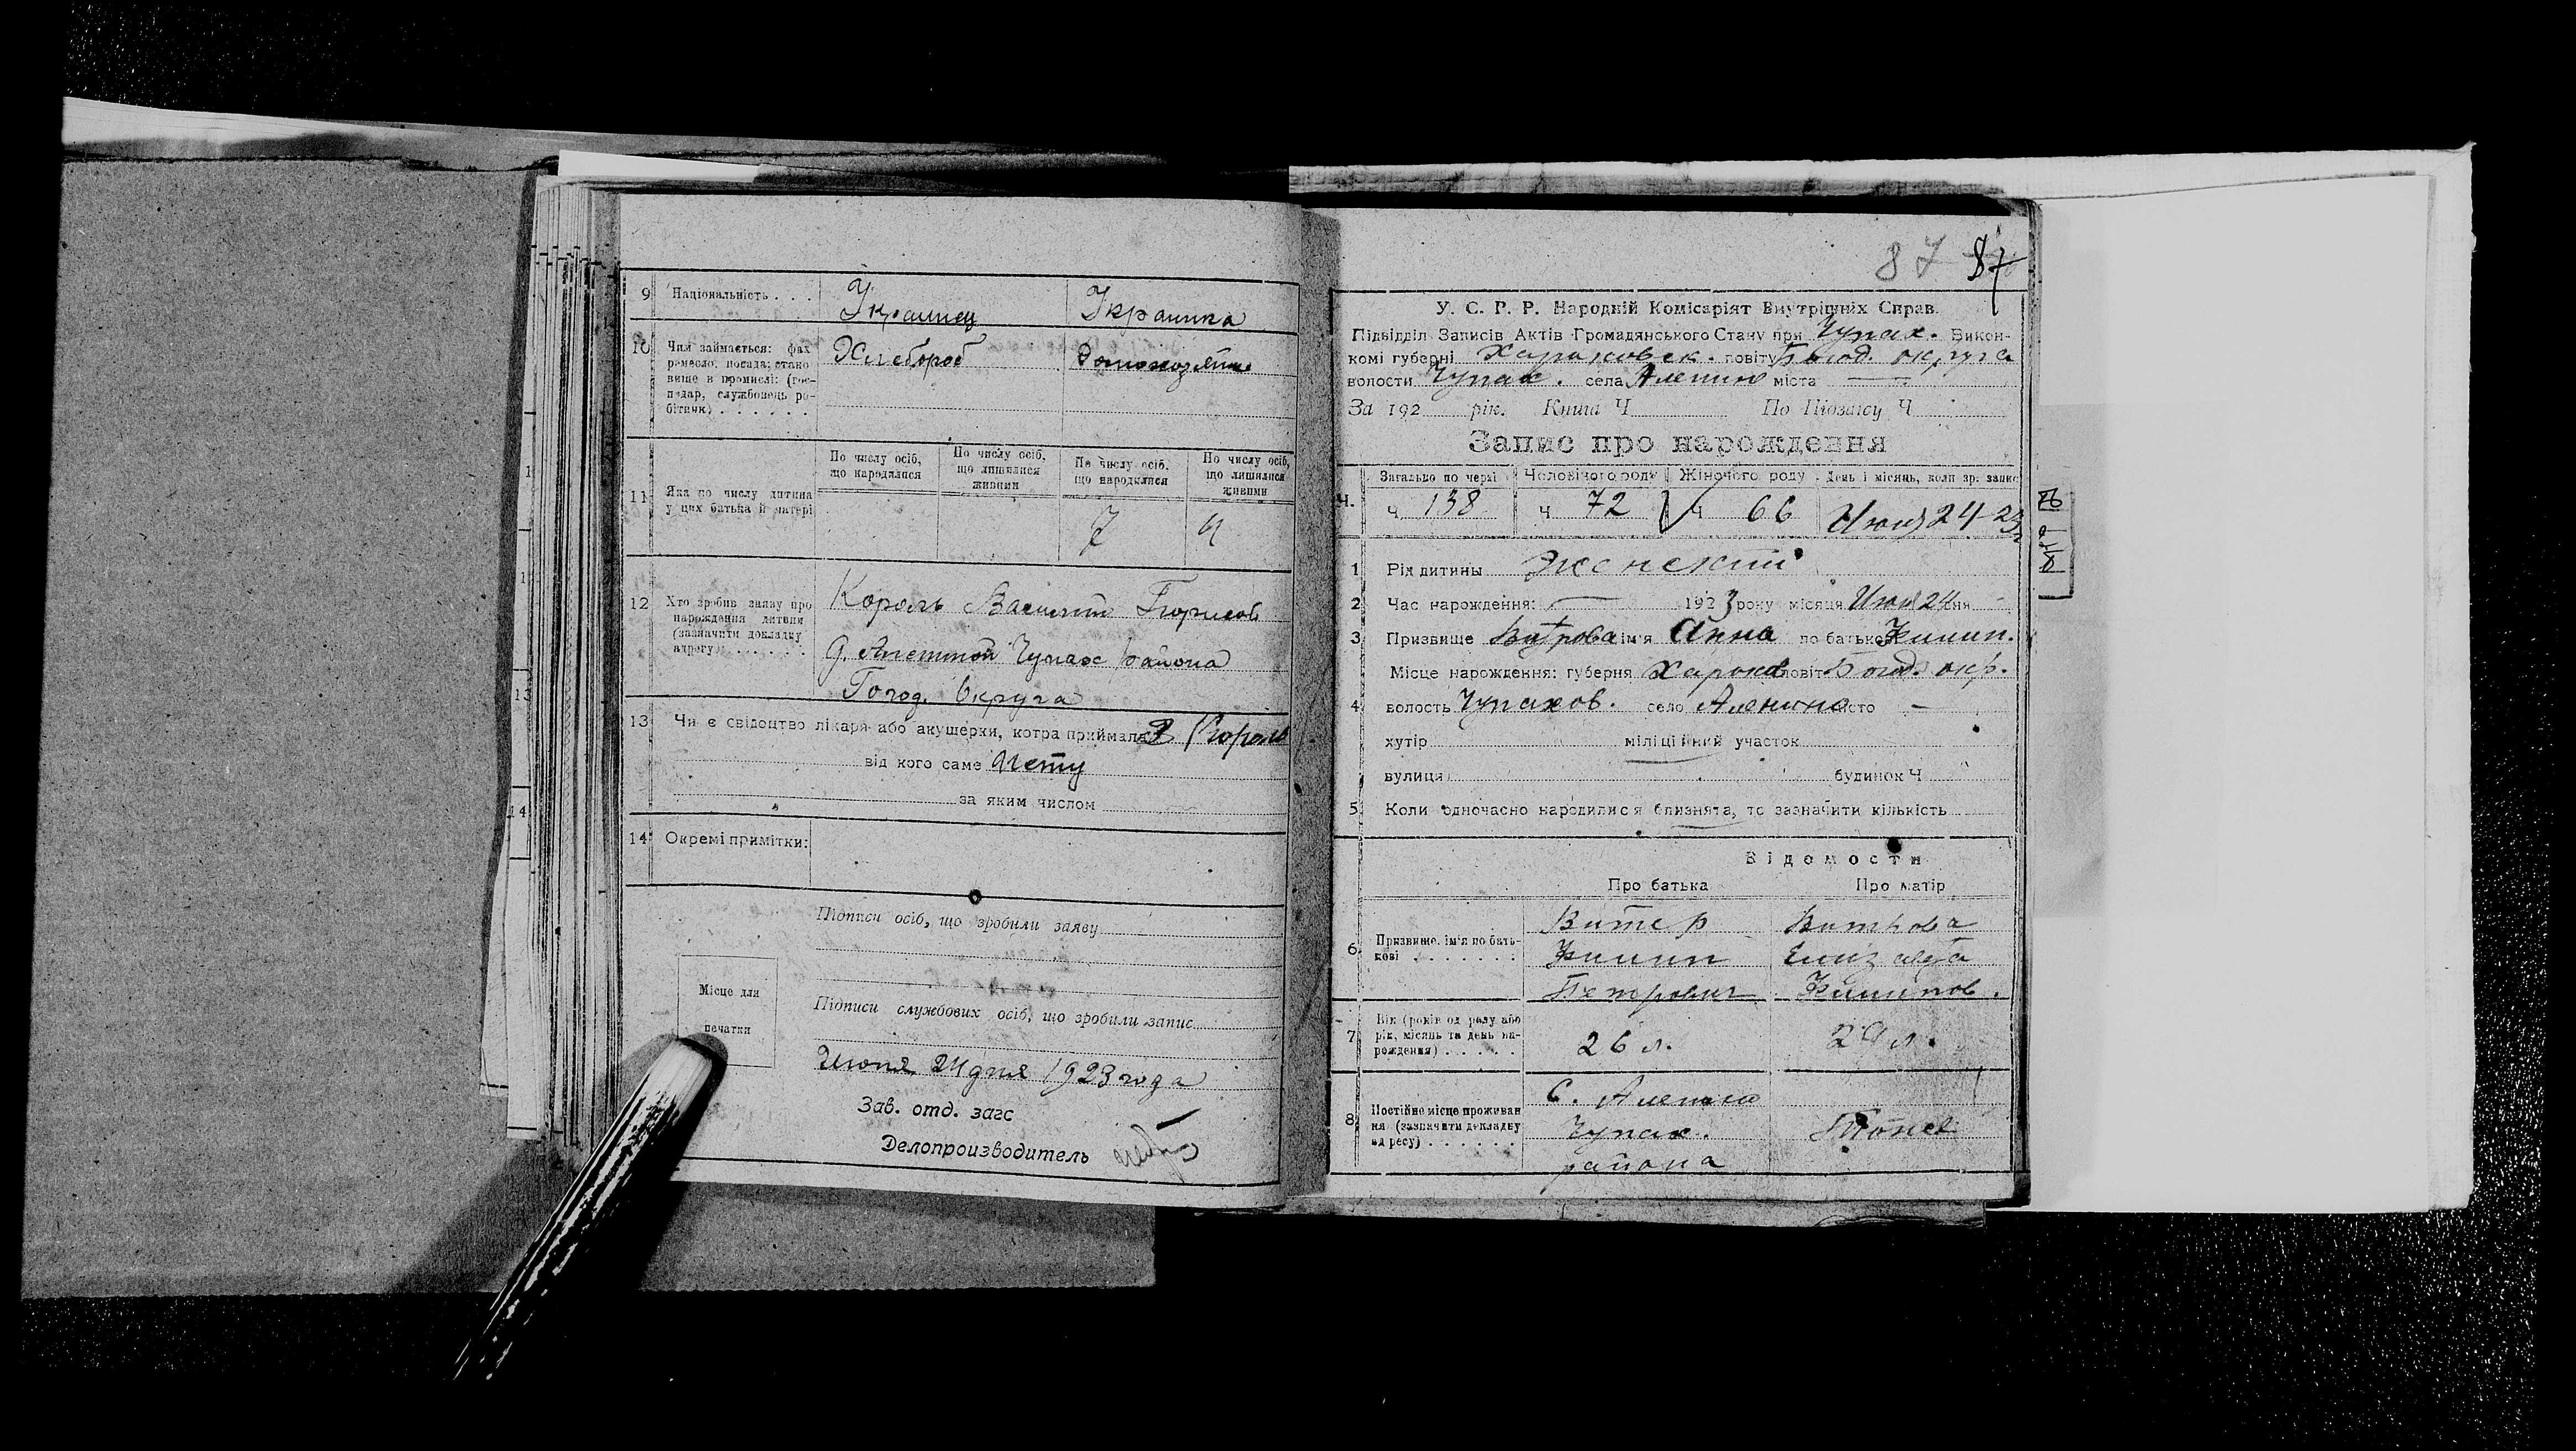 9 Національність . . . Украинец Украинка
10 Чим займається: фах
ремесло, посада; стано
вище в промислі: (гос-
подар, службовець ро-
бітник) . . . . . .
Хлебороб
11 Яка по числу дитина
у цих батька й матері
По числу осіб,
що народилися
По числу осіб,
що лишилися
живими
По числу осіб,
що народилися
По числу осіб,
що лишилися
живими
7
12 Хто зробив заяву про
народження дитини
(зазначити докладну
адресу) . . . . . .
Король
Чупах района
Округа
13 Чи є свідоцтво лікаря або акушерки, котра приймала Король
від кого саме
за яким числом
14 Окремі примітки:
Підписи осіб, що зробили заяву
Місце для
печатки
Підписи службових осіб, що зробили запис
Июня 24 дня 1923 года
Зав. отд. загс
Делопроизводитель
87 87
У. С. Р. Р. Народній Комісаріят Внутрішніх Справ.
Підвідділ Записів Актів Громадянського Стану при Чупах. Викон-
комі губерні Харьковск. повіту Богод. округа
волости Чупах. села Алешино міста —
За 192 рік. Книга Ч По Підзагсу Ч
Запис про народження
Загально по черзі Чоловічого роду Жіночого роду День і місяць, коли зр. запис
Ч. ч 138 ч 72 ч 66 Июня 24-23
1 Рід дитины женский
2 Час нарождення: — 1923 року місяця Июня 24 дня
3 Призвище Витрова ім'я Анна по батькові Филип.
4 Місце нарождення: губерня Харьков повіт Богод. окр.
волость Чупахов. село Алешино місто —
хутір міліційний участок
вулиця будинок Ч
5 Коли одночасно народилися близнята, то зазначити кількість
Відомости
Про батька Про матір
6 Призвище, ім'я по бать-
кові . . . . . . .
Витер Витрова
Филип Елизавета
Петрович Филипов.
7 Вік (років од роду або
рік, місяць та день на-
родження) . . . . .
26 л. 29 л.
8 Постійне місце проживан
ня (зазначити докладну
адресу) . . . . . .
С. Алешино
Чупах.
района